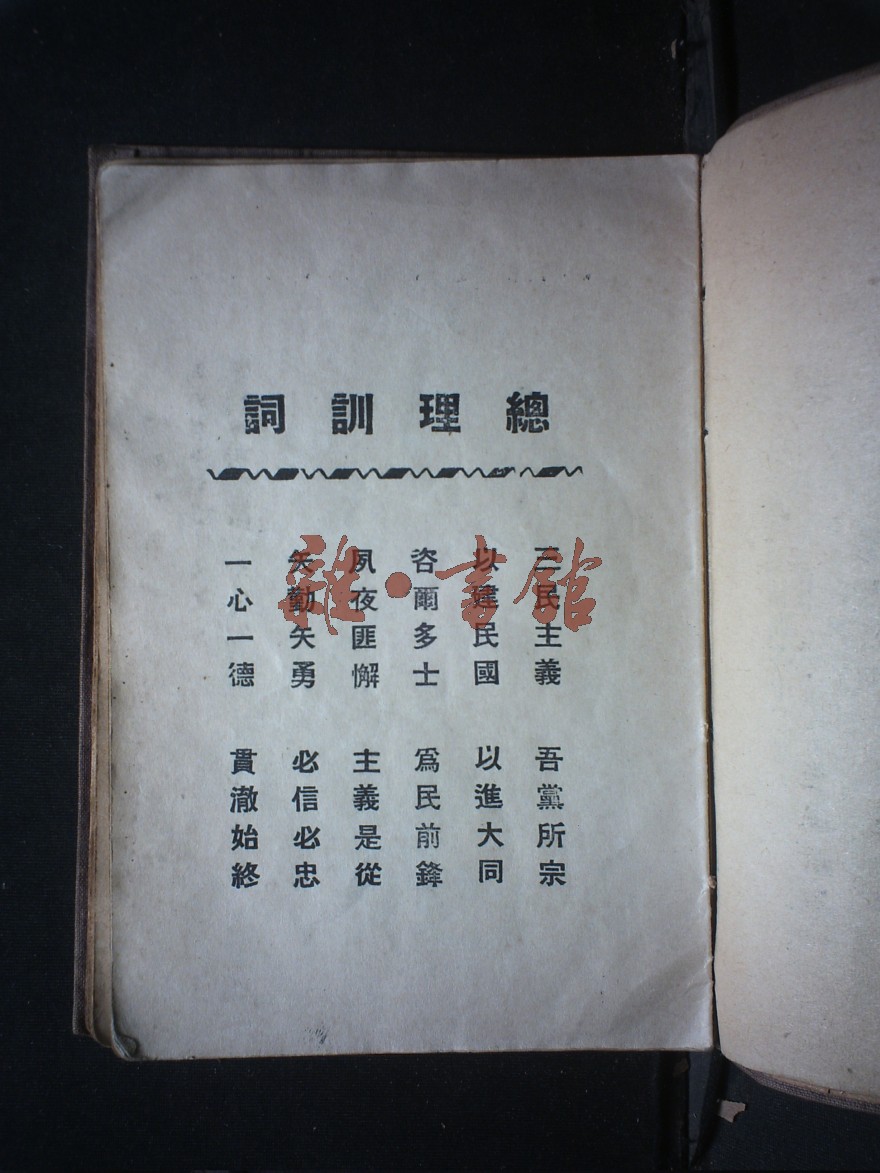 總理訓詞
三民主義 吾黨所宗
以建民國 以進大同
咨爾多士 爲民前鋒
夙夜匪懈 主義是從
矢勤矢勇 必信必忠
一心一德 貫澈始終
雜·書館